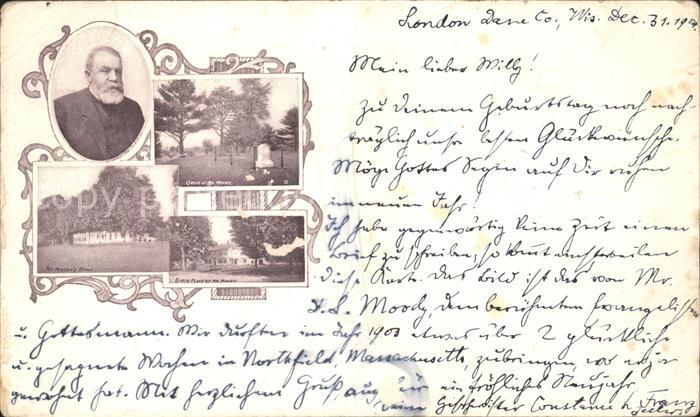 London Dane Co., Wis. Dez. 31. 190
Mein lieber Willy!
Zu deinem Geburtstag noch nach
träglich unsre besten Glückwünsche.
Möge Gottes Segen auf Dir ruhen
im neuen Jahr!
Ich habe gegenwärtig keine Zeit einen
Brief zu schreiben, so kommt einstweilen
diese Karte. Das Bild ist das von Mr.
D. L. Moody, dem berühmten Evangelisten
u. Gottesmann. Wir durften im Jahr 1903 etwas über 2 glückliche
u. gesegnete Wochen in Northfield, Massachusetts zubringen, wo er
gewohnt hat. Mit herzlichem Gruß auch für ein fröhliches Neujahr,
Geschwister Constance u. Franz
GRAVE OF MR. MOODY.
MR. MOODY'S HOME
BIRTH PLACE OF MR. MOODY.
Copy protected